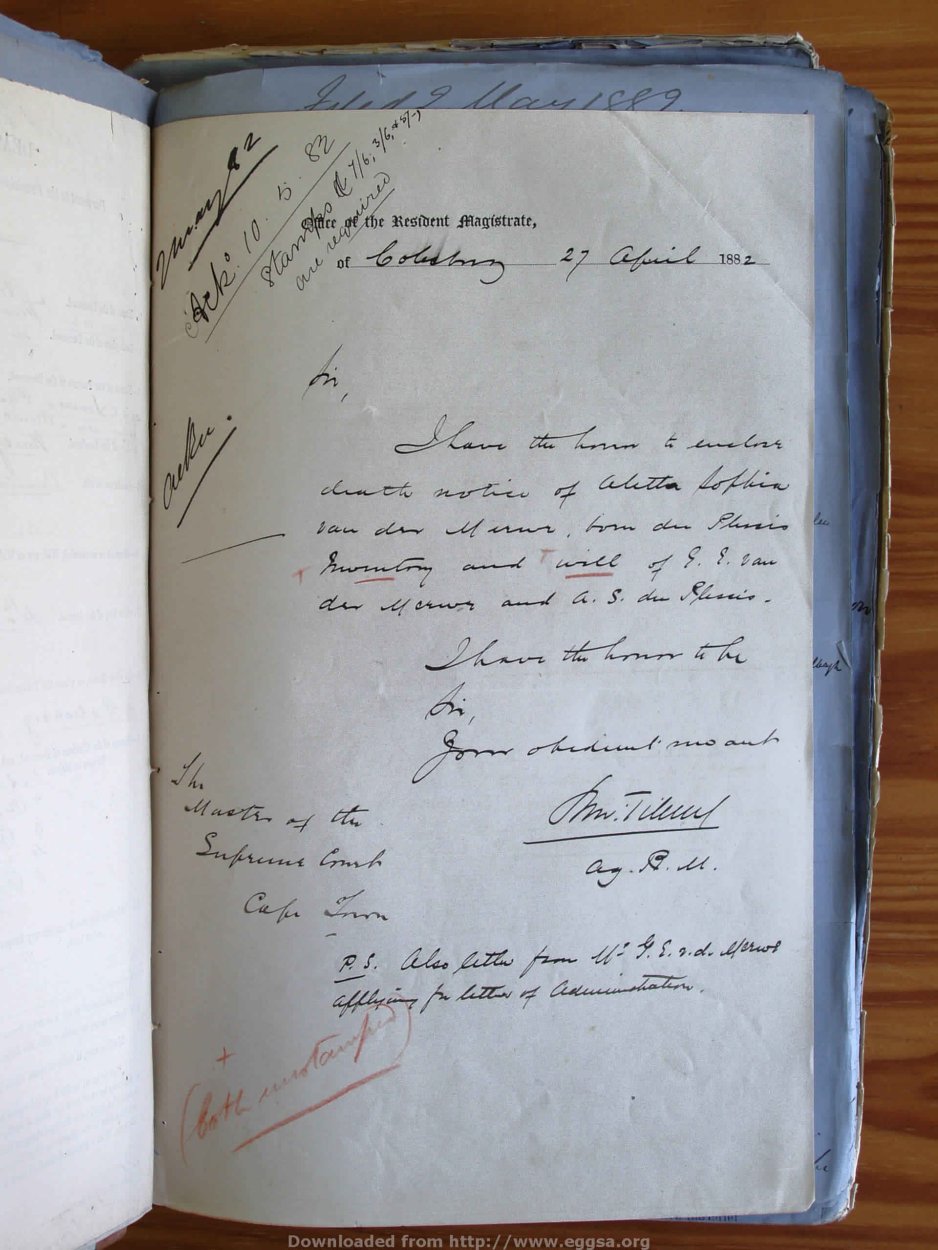 Filed 9 May 1882
2 May 82
Ack: 10. 5. 82
Stamps @ 7/6, 3/6, & 5/-,
are required
Office of the Resident Magistrate,
of Colesberg 27 April 1882
Sir,
I have the honor to enclose
death notice of Aletta Sophia
van der Merwe, born du Plessis
+ Inventory and + will of G. E. van
der Merwe and A. S. du Plessis.
I have the honor to be
Sir,
Your obedient servant
Ag. R. M.
The
Master of the
Supreme Court
Cape Town
P.S. Also letter from Mr G. E. v. d. Merwe
applying for letter of Administration.
+
(both unstamped)
Downloaded from http://www.eggsa.org